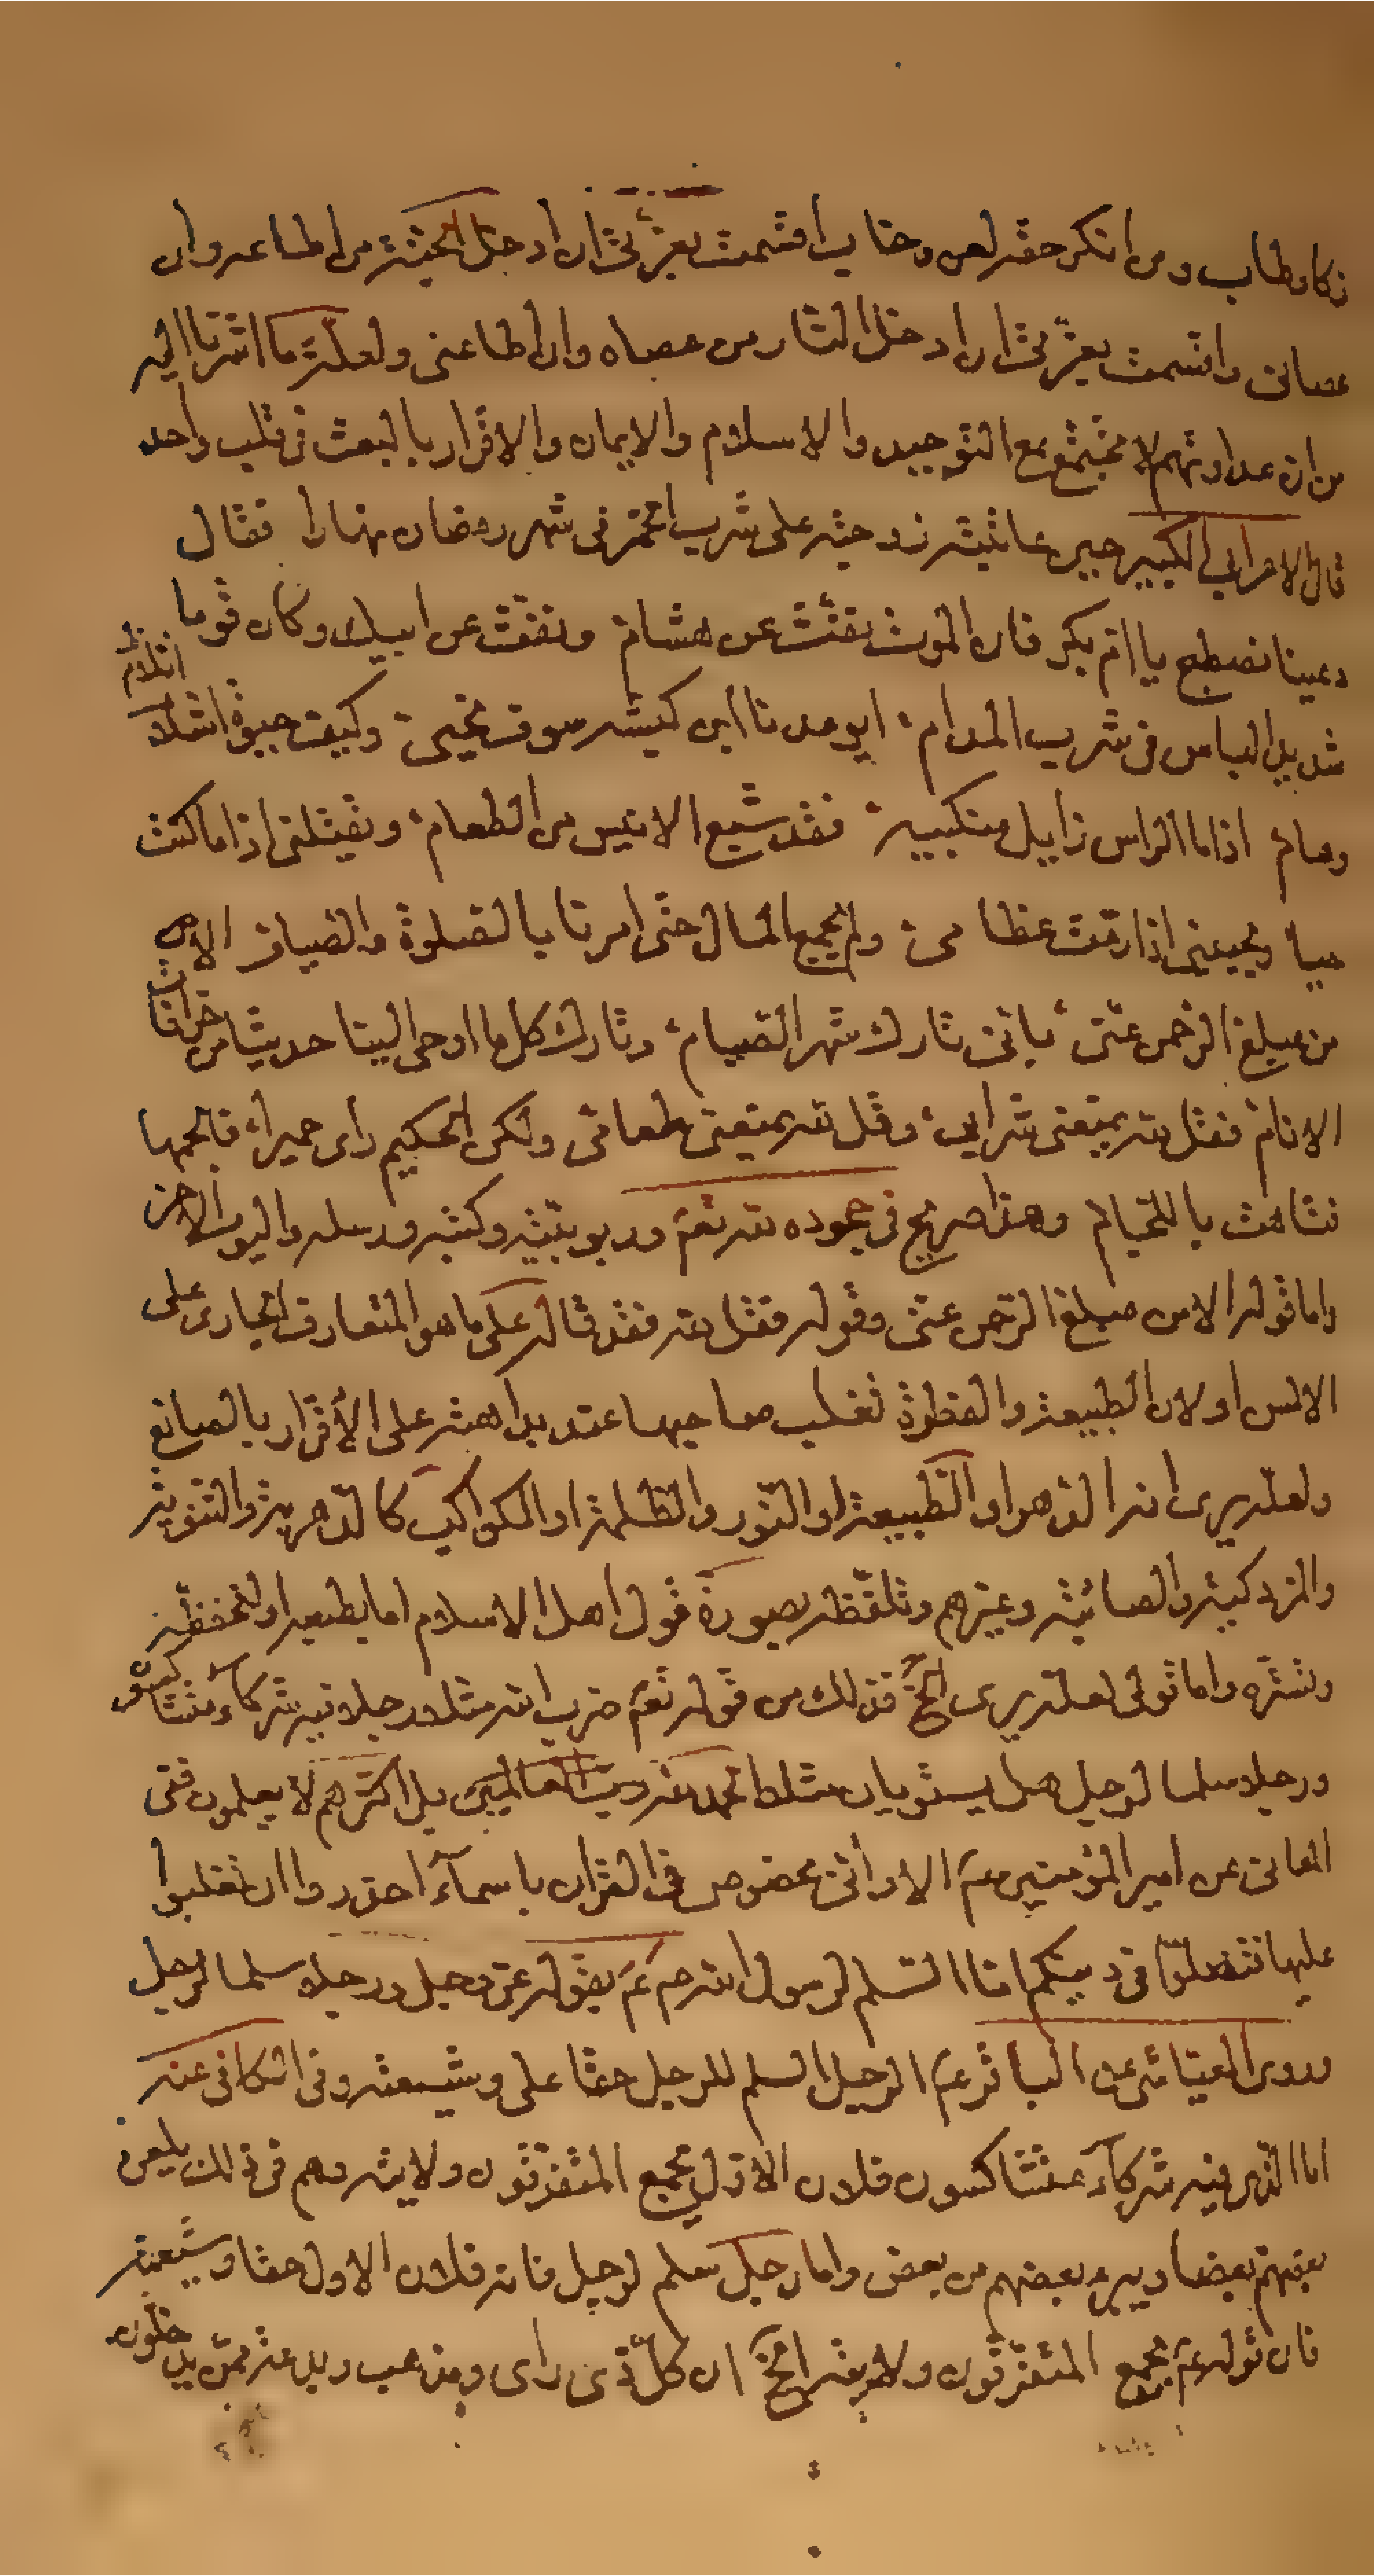 زكا وطاب ومن انكر حقه لعن وخاب اقسمت بعزتى ان ادخل الجنة من اطاعه وان
عصانى واقسمت بعزتى ان ادخل النار من عصاه وان اطاعنى ولعلة ما اشرنا اليه
من ان عداوتهم لا تجتمع مع التوحيد والاسلام والايمان والاقرار بالبعث فى قلب واحد
قال الاعرابى الكبير حين عاتبته زوجته على شرب الخمر فى شهر رمضان نهارا فقال
دعينا نصطبح يا ام بكر فان الموت نقث عن هشام ونقث عن ابيك وكان قرما
شديد الباس فى شرب المدام ايوعدنا ابن كبشه سوف نحيى وكيف حيوة اشلاء
وهام اذا ما الراس زايل منكبيه فقد شبع الانيس من الطعام ويقتلنى اذا ما كنت
حيا ويحيينى اذا رمت عظامى ولم يجمع المال حتى امرنا بالصلوة والصيام الا من
من مبلغ الرحمن عنى بانى تارك شهر الصيام وتارك كل ما اوحى الينا حديثا من خرافات
الانام فقل لله يمنعنى شرابى وقل لله يمنعنى طعامى ولكن الحكيم راى حميرا فالجمها
فتاهت باللجام وهذا صريح فى جحوده لله تعم وربوبيته وكتبه ورسله واليوم الاخر
واما قوله الا من مبلغ الرحمن عنى وقوله فقل لله فقد قاله على ما هو المتعارف الجارى على
الالسن او لان الطبيعة والفطرة تغلب صاحبها عند بداهته على الاقرار بالصانع
ولعله يرى انه الدهر او الطبيعة او النور والظلمة او الكواكب كالدهرية والثنوية
والمزدكية والصائبة وغيرهم وتلفظه بصورة قول اهل الاسلام اما لطبعه او لتحفظه
وتستره واما قولى لعله يرى الخ فذلك من قوله تعم ضرب الله مثلا رجلا فيه شركاء متشاكسون
ورجلا سلما لرجل هل يستويان مثلا الحمد لله رب العالمين بل اكثرهم لا يعلمون ففى
المعانى عن امير المؤمنين عم الا وانى مخصوص فى القران باسماء احذروا ان تغلبوا
عليها فتضلوا فى دينكم انا السلم لرسول الله صم عم يقوله عز وجل ورجلا سلما لرجل
وروى العياشى عن الباقر عم الرجل السلم للرجل حقا على وشيعته وفى الكافى عنه
اما الذى فيه شركاء متشاكسون فلان الاول يجمع المتفرقون ولايته وهم فى ذلك يلعن
بعضهم بعضا ويبرء بعضهم من بعض واما رجل سلم لرجل فانه فلان الاول حقا وشيعته
فان قوله عم يجمع المتفرقون ولايته الخ ان كل ذى راى ومذهب وبدعة ممن يدخلون